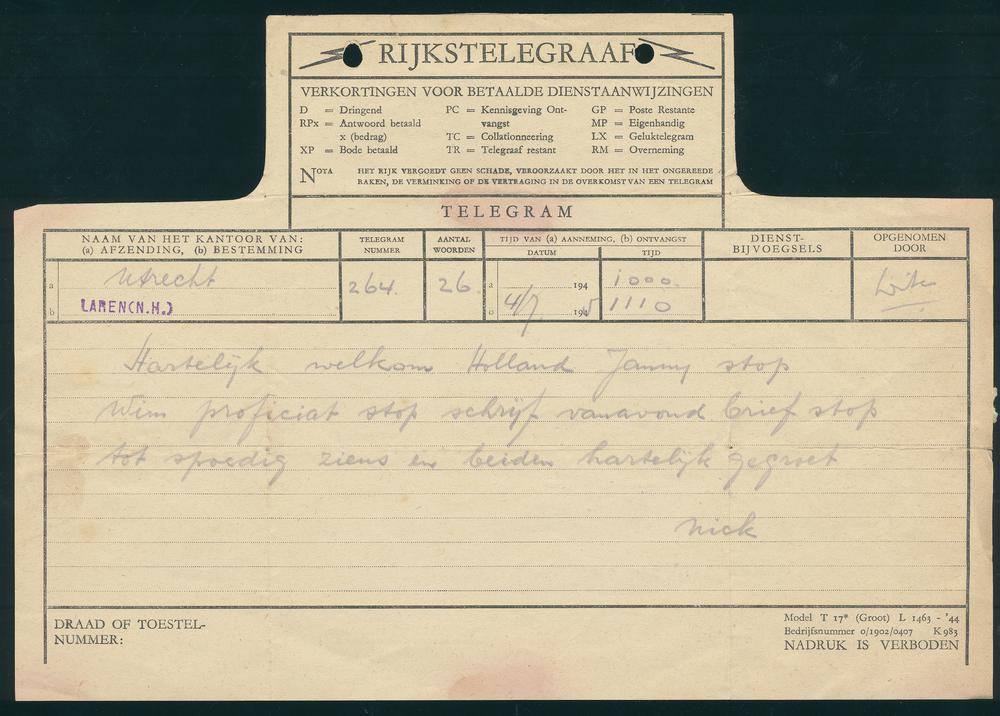 RIJKSTELEGRAAF
VERKORTINGEN VOOR BETAALDE DIENSTAANWIJZINGEN
D = Dringend
RPx = Antwoord betaald
x (bedrag)
XP = Bode betaald
PC = Kennisgeving Ont-
vangst
TC = Collationneering
TR = Telegraaf restant
GP = Poste Restante
MP = Eigenhandig
LX = Geluktelegram
RM = Overneming
NOTA HET RIJK VERGOEDT GEEN SCHADE, VEROORZAAKT DOOR HET IN HET ONGEREEDE
RAKEN, DE VERMINKING OF DE VERTRAGING IN DE OVERKOMST VAN EEN TELEGRAM
TELEGRAM
NAAM VAN HET KANTOOR VAN:
(a) AFZENDING, (b) BESTEMMING
TELEGRAM
NUMMER
AANTAL
WOORDEN
TIJD VAN (a) AANNEMING, (b) ONTVANGST
DATUM TIJD
DIENST-
BIJVOEGSELS
OPGENOMEN
DOOR
a Utrecht 264. 26 a 194 1000.
b LAREN(N.H.) 4/7 1945 1110
Hartelijk welkom Holland Janny stop
Wim proficiat stop schrijf vanavond brief stop
tot spoedig ziens en beiden hartelijk gegroet
Nick
DRAAD OF TOESTEL-
NUMMER:
Model T 17* (Groot) L 1463 - '44
Bedrijfsnummer 0/1902/0407 K 983
NADRUK IS VERBODEN